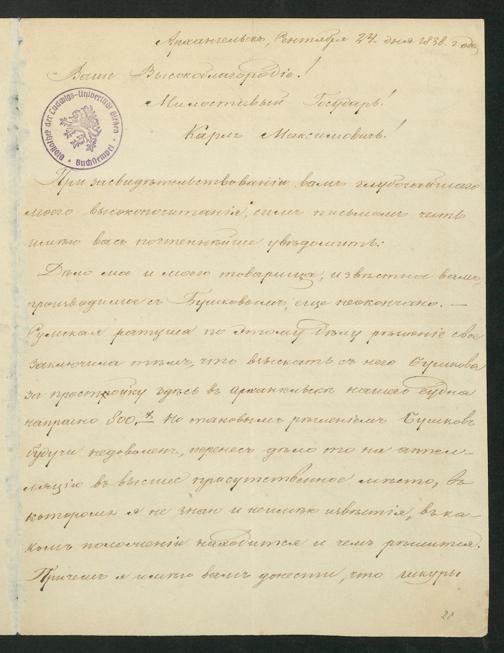 Архангельскъ, Сентября 24. дня 1838. года
Ваше Высокоблагородіе!
Милостивый Государь!
Карлъ Максимовичъ!
Bibliothek der Ludwigs-Universität Giessen
Buchstempel
При засвидѣтельствованіи вамъ глубочайшаго
моего высокопочитанія, симъ письмомъ честь
имѣю васъ почтеннѣйше увѣдомить:
Дѣло мое и моего товарища, извѣстное вамъ,
производимое съ Бушковымъ, еще неокончано. —
Сумская ратуша по этому дѣлу рѣшеніе свое
заключила тѣмъ, что взыскать съ него Бушкова
за простойку здѣсь въ Архангельскѣ нашего судна
напрасно 800. Но таковымъ рѣшеніемъ Бушковъ
будучи недоволенъ, перенесъ дѣло то на аппел-
ляцію въ высшее присутственное мѣсто, въ
которомъ я не знаю и неимѣю извѣстія, въ ка-
комъ положеніи находится и чемъ рѣшится.
Причемъ я имѣю вамъ донести, что шкуры
28